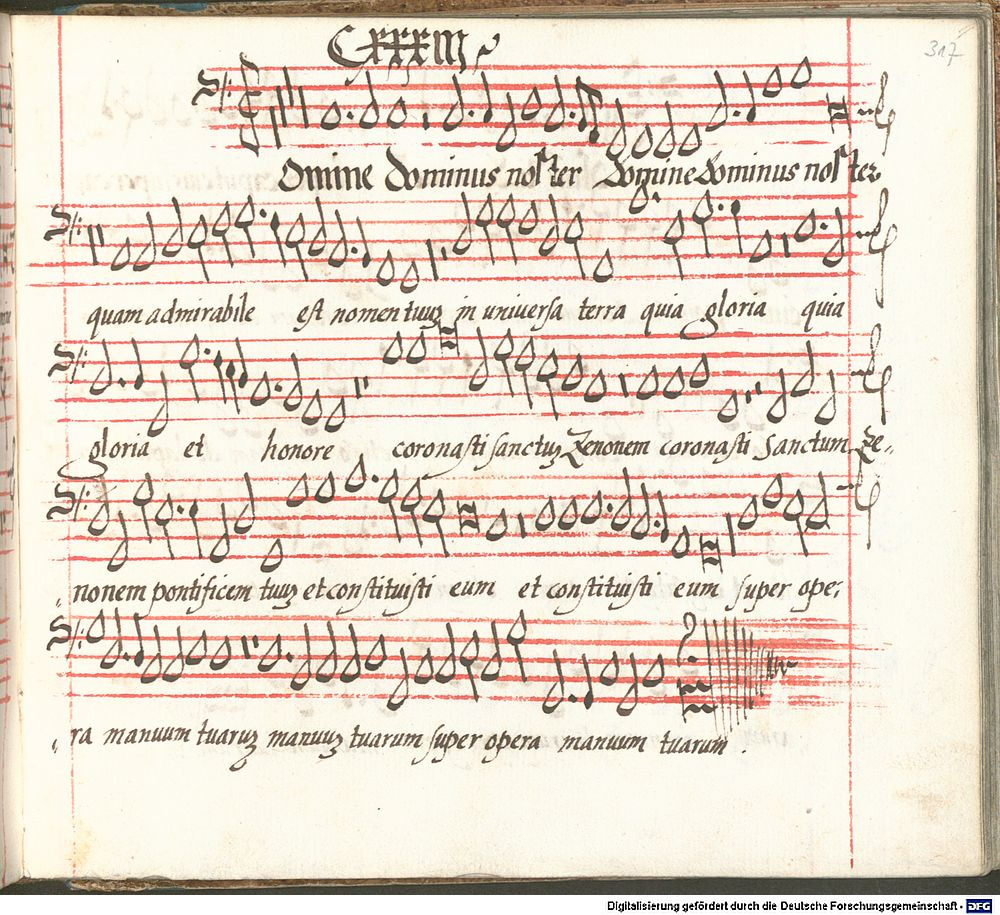 CXXXIII
317
Omine Dominus noster Domine Dominus noster
quam admirabile est nomen tuuʒ in universa terra quia gloria quia
gloria et honore coronasti sanctuʒ Zenonem coronasti Sanctum Ze-
nonem pontificem tuuʒ et constituisti eum et constituisti eum super ope-
ra manuum tuaruʒ manuuʒ tuarum super opera manuum tuarum .
Digitalisierung gefördert durch die Deutsche Forschungsgemeinschaft - DFG